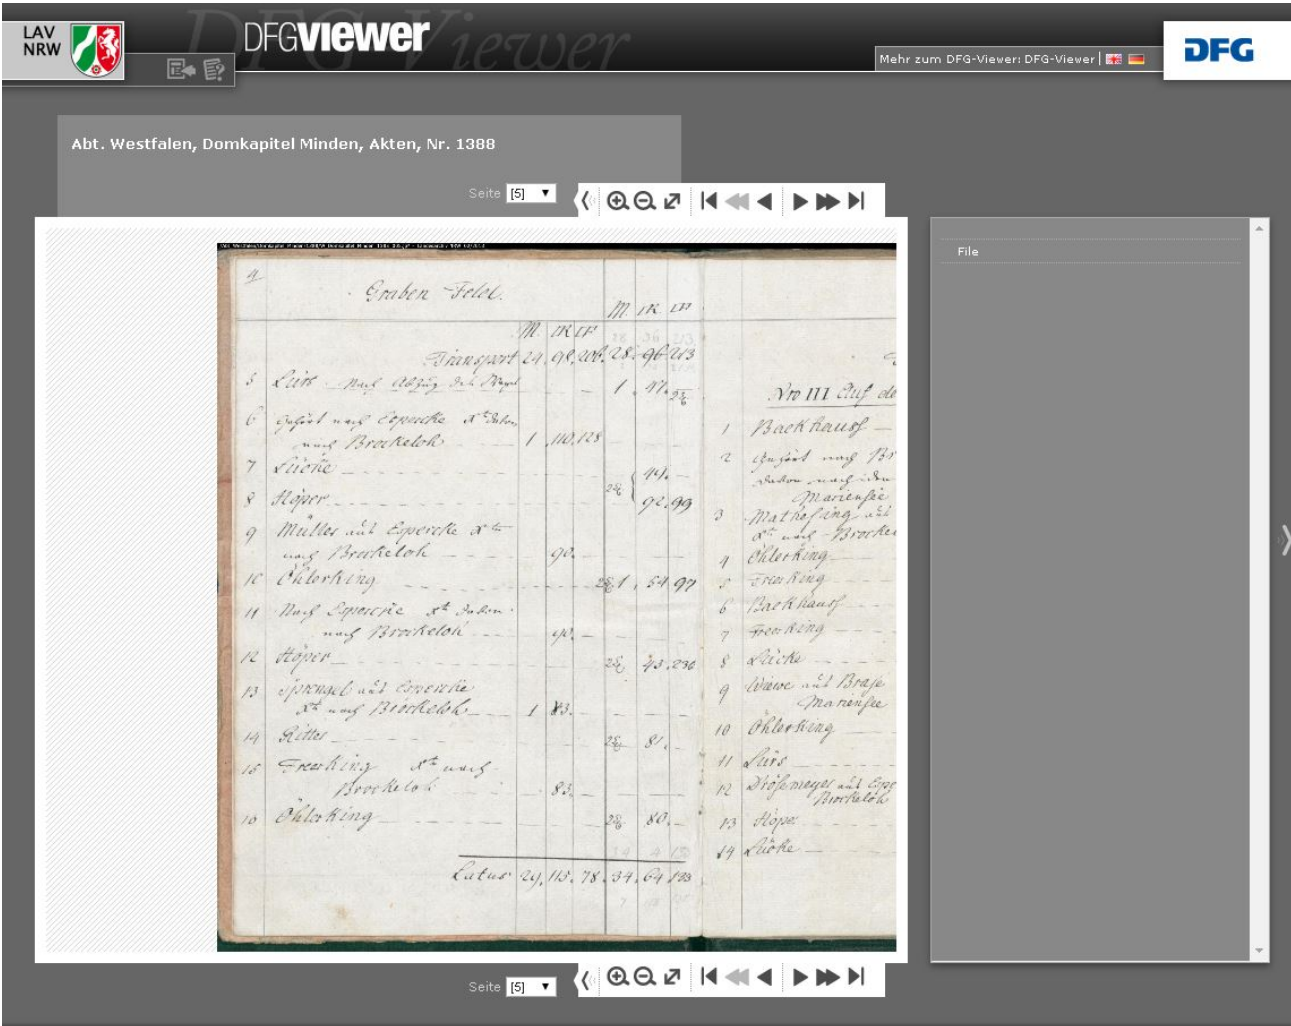 LAV
NRW
DFGVIEWER
Mehr zum DFG-Viewer: DFG-Viewer |
DFG
Abt. Westfalen, Domkapitel Minden, Akten, Nr. 1388
Seite [5]
File
4
Graben Feld.
M. IR IF
M. IR IF
Transport 24. 98. 206. 28. 96 213
5 Lürs Nach Abzug 1. 47.
6 gehört nach Espercke davon
nach Brockeloh 1. 110. 128
7 Lücke 44.
8 Höper 92. 99
9 Müller aus Espercke
nach Brockeloh 90.
10 Öhlerking 1. 54 97
11 Nach Espercke davon
nach Brockeloh 90.
12 Höper 43. 236
13 Sprengel aus Espercke
nach Brockeloh 1 83.
14 Ritter 81.
15 Freerking nach
Brockeloh 83.
16 Öhlerking 80.
Latus 29. 115. 78. 34. 64 133
Nro III Auf de
1 Backhauss
2 Gehört nach Br
davon nach
Mariensee
3 aus
nach Brocke
4 Öhlerking
5 Freerking
6 Backhauss
7 Freerking
8 Lücke
9 aus Brase
Mariensee
10 Öhlerking
11 Lürs
12 Drösemeyer aus Espe
Brockeloh
13 Höper
14 Lücke
Seite [5]